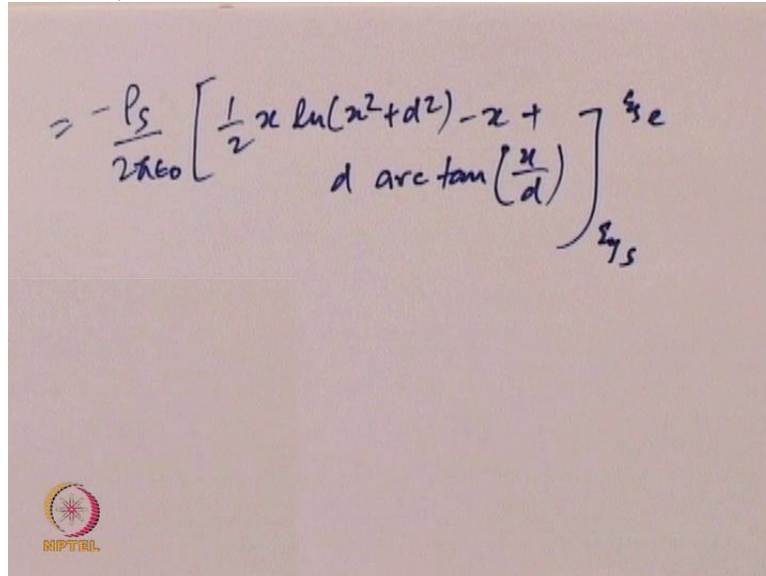 = -ρs/2πϵ0 [ 1/2 x ln(x²+d²) - x +
d arc tan(x/d) ] ξe ξs
NPTEL